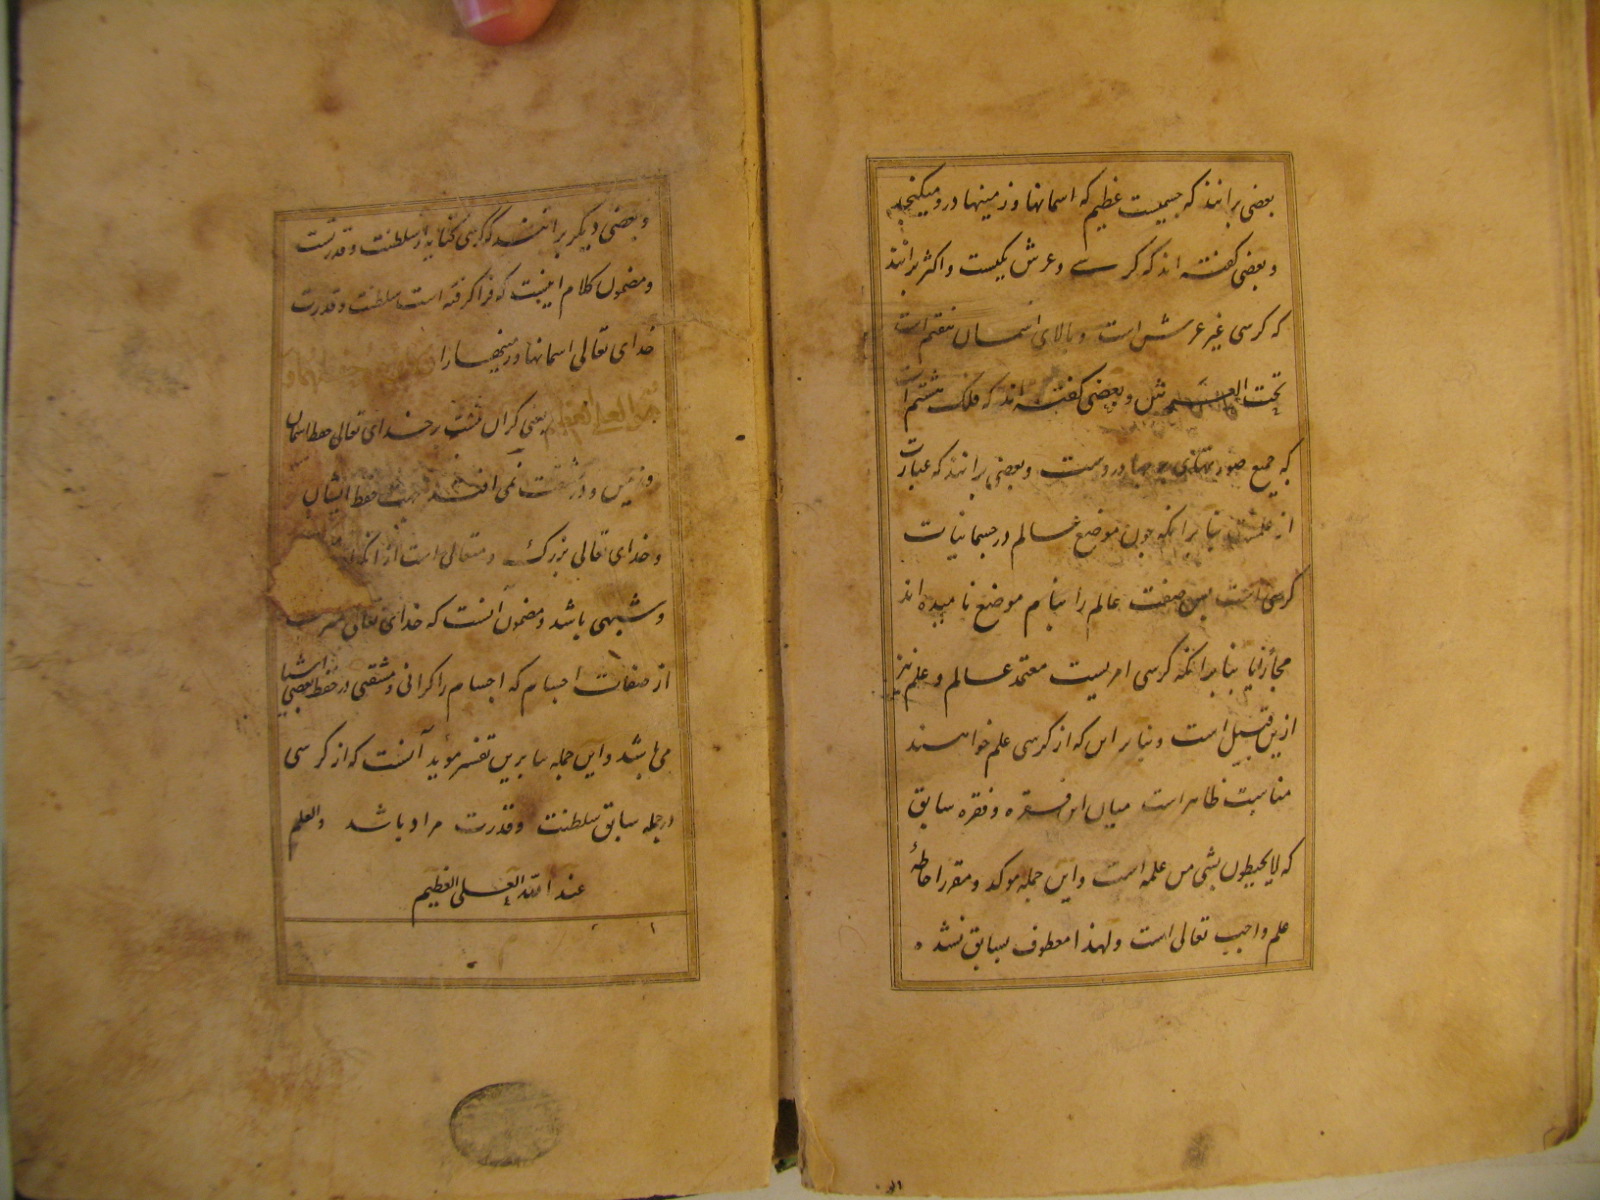 بعضی برانند که جسمیست عظیم که اسمانها و زمینها درو میکنجد
و بعضی کفته اند که کرسے و عرش یکیست و اکثر برانند
که کرسی غیر عرش است و بالای اسمان هفتم است
تحت العرش و بعضی کفته اند که فلک هشتم است
که جمیع صور دروست و بعضی برانند که عبارت
از علمست بنا برانکه چون موضع عالم در جسمانیات
کرسی است پس صفت عالم را بنام موضع نامیده اند
مجازا یا بنا برانکه کرسی امریست معتمد عالم و علم نیز
ازین قبیل است و بنا بر این که از کرسی علم خواهند
مناسبت ظاهر است میان این فقره و فقره سابق
که لا یحیطون بشی من علمه است و این جمله موکد و مقرر احاطهٔ
علم واجب تعالی است و لهذا معطوف بسابق نشده
و بعضی دیکر برانند که کرسی کنایه از سلطنت و قدرتست
و مضمون کلام اینست که فرا کرفته است سلطنت و قدرت
خدای تعالی اسمانها و زمینها را
العلی العظیم یعنی کران نیست بر خدای تعالی حفظ اسمان
و زمین و در مشقت نمی افتد جهت حفظ ایشان
و خدای تعالی بزرک و متعالی است از انکه
و شبهی باشد و مضمون آنست که خدای تعالی
از صفات اجسام که اجسام را کرانی و مشقتی در حفظ بعضی اشیا
می باشد و این جمله بنا برین تفسیر مؤید آنست که از کرسی
در جمله سابق سلطنت و قدرت مراد باشد والعلم
عند الله العلی العظیم